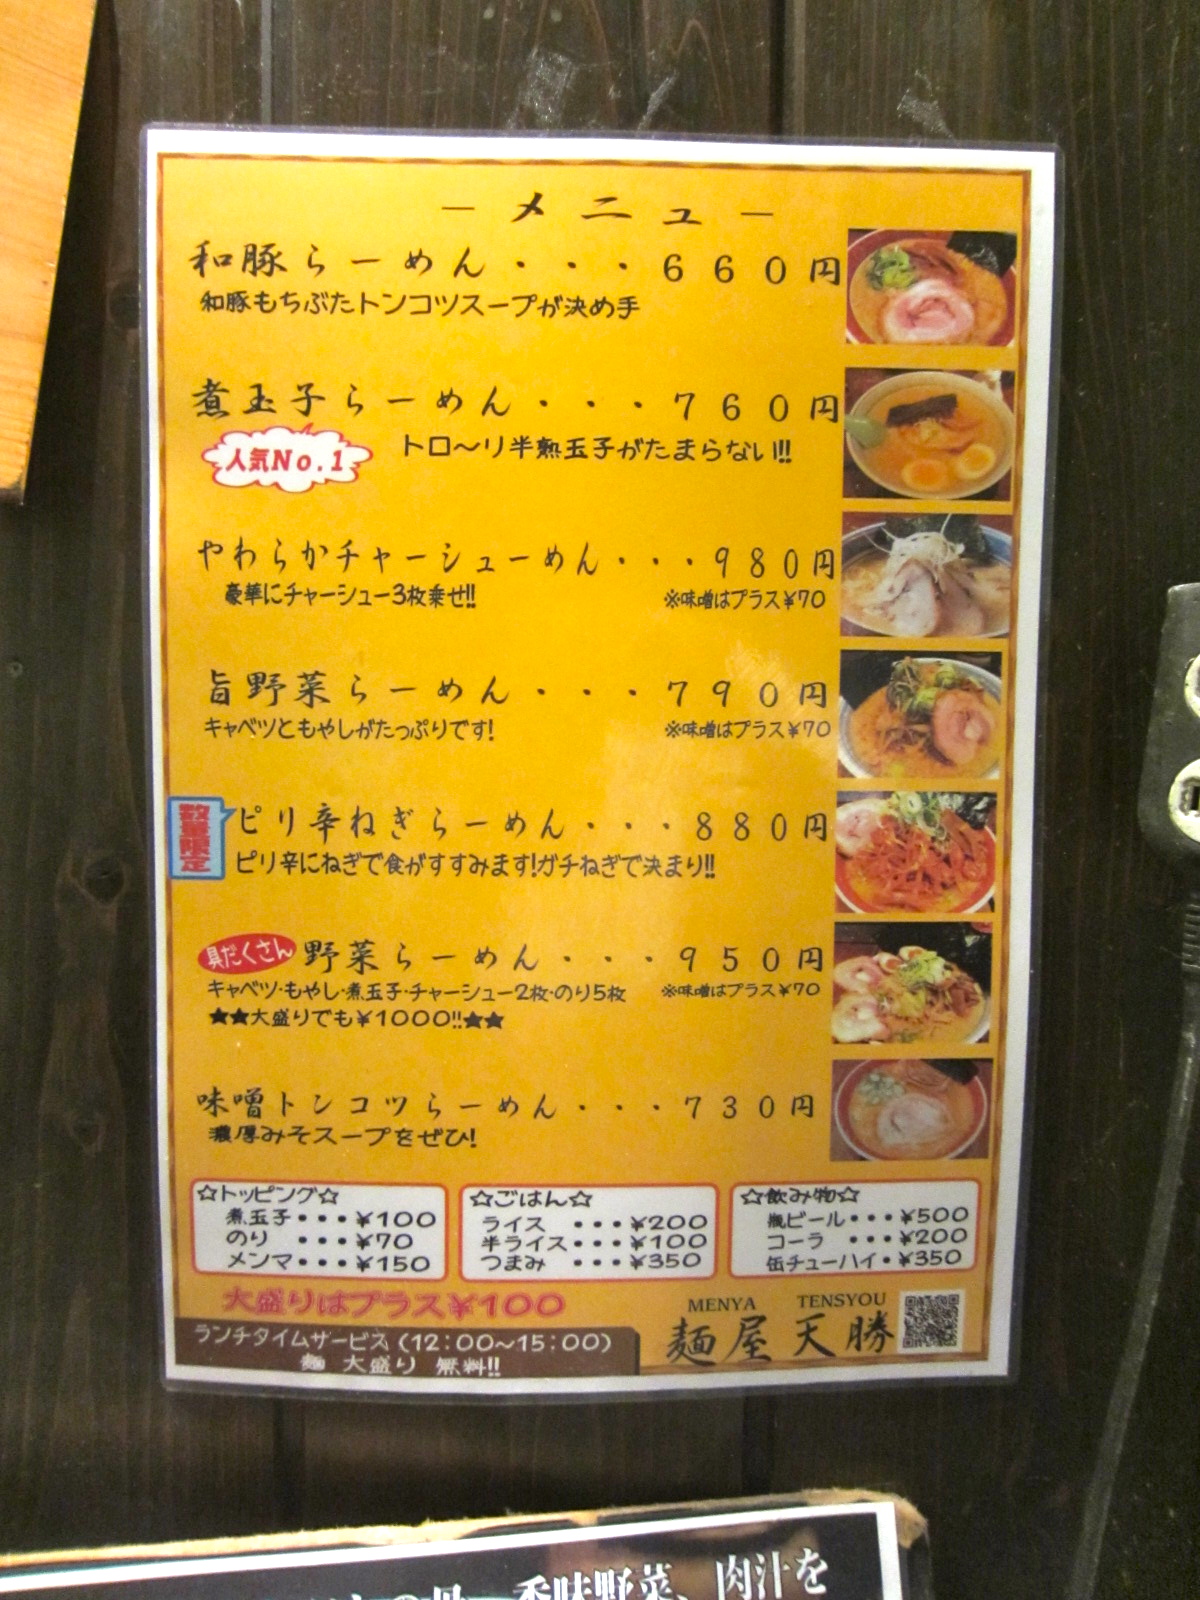 －メニュー
和豚らーめん・・・660円
和豚もちぶたトンコツスープが決め手
煮玉子らーめん・・・760円
人気No.1
トロ〜リ半熟玉子がたまらない!!
やわらかチャーシューめん・・・980円
豪華にチャーシュー3枚乗せ!!
※味噌はプラス¥70
旨野菜らーめん・・・790円
キャベツともやしがたっぷりです!
※味噌はプラス¥70
数量限定
ピリ辛ねぎらーめん・・・880円
ピリ辛にねぎで食がすすみます!ガチねぎで決まり!!
具だくさん
野菜らーめん・・・950円
キャベツ・もやし・煮玉子・チャーシュー2枚・のり5枚
※味噌はプラス¥70
★★大盛りでも¥1000!!★★
味噌トンコツらーめん・・・730円
濃厚みそスープをぜひ!
☆トッピング☆
煮玉子・・・¥100
のり・・・¥70
メンマ・・・¥150
☆ごはん☆
ライス・・・¥200
半ライス・・・¥100
つまみ・・・¥350
☆飲み物☆
瓶ビール・・・¥500
コーラ・・・¥200
缶チューハイ・¥350
大盛りはプラス¥100
ランチタイムサービス(12:00〜15:00)
麺 大盛り 無料!!
MENYA TENSYOU
麺屋 天勝
香味野菜、肉汁を